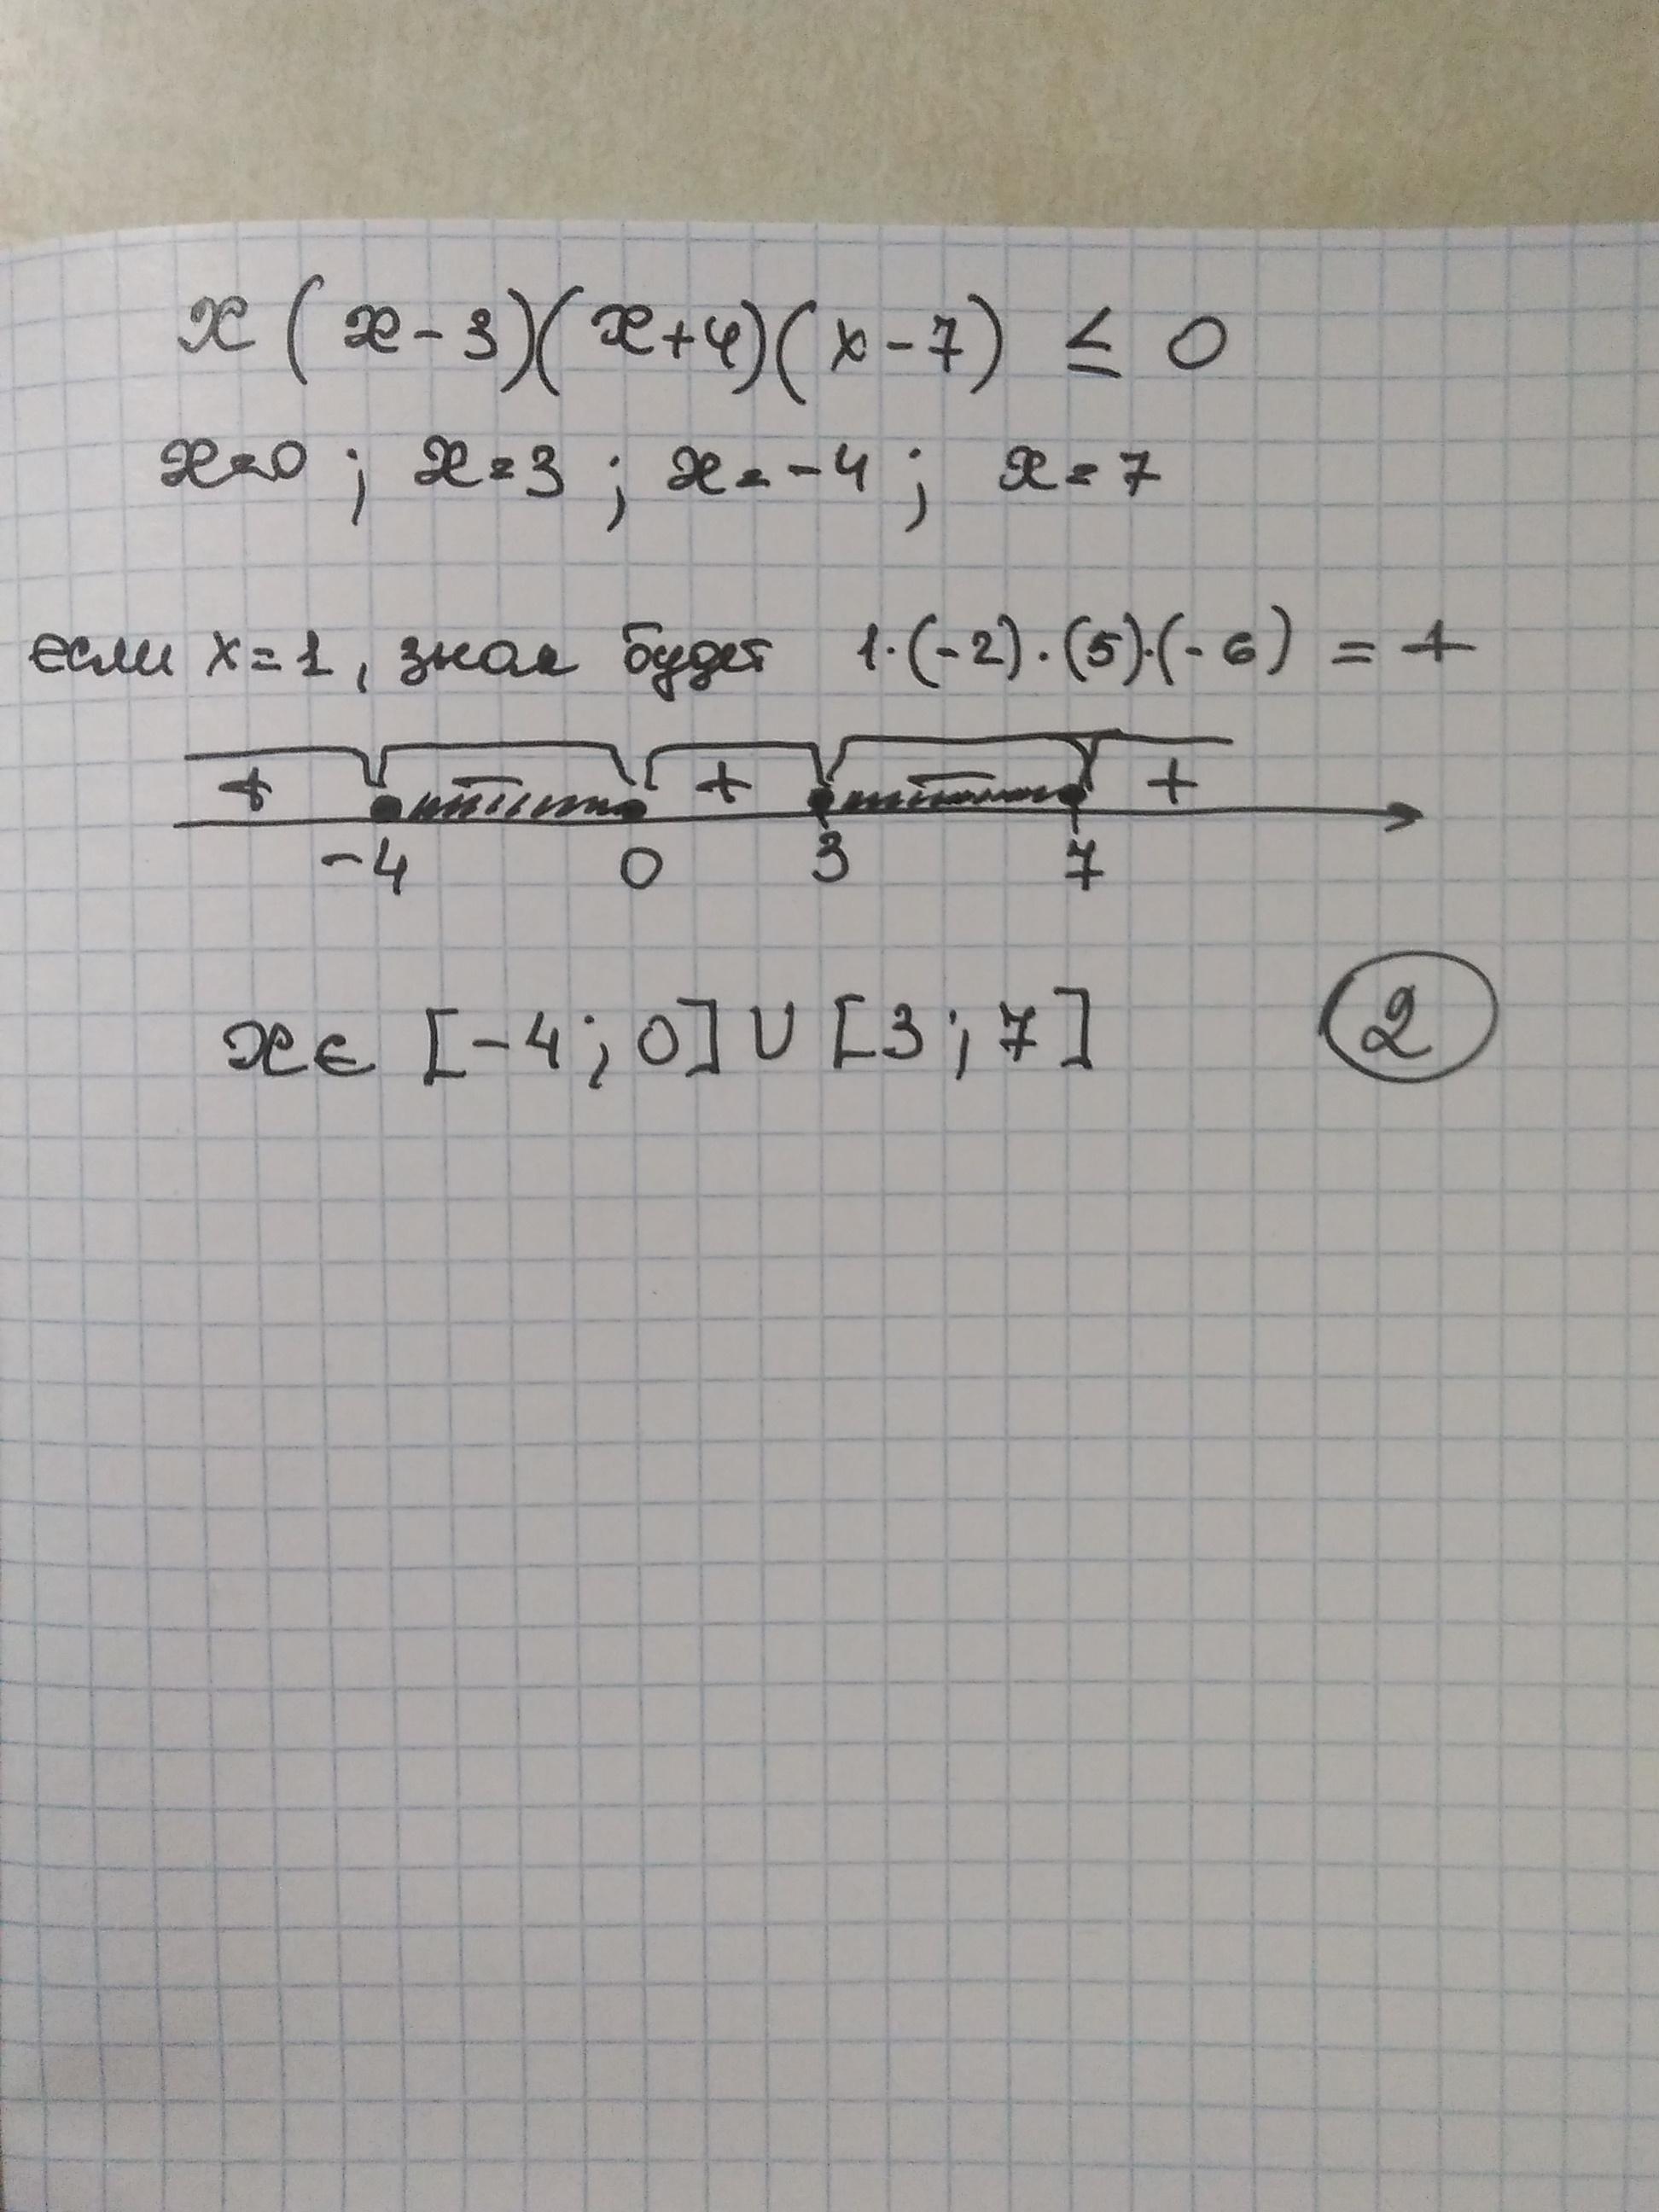 x(x-3)(x+4)(x-7) ≤ 0
x=0; x=3; x=-4; x=7
если x=1, знак будет 1·(-2)·(5)·(-6) = +
+ - + - +
-4 0 3 7
x∈ [-4; 0]∪[3; 7] 2